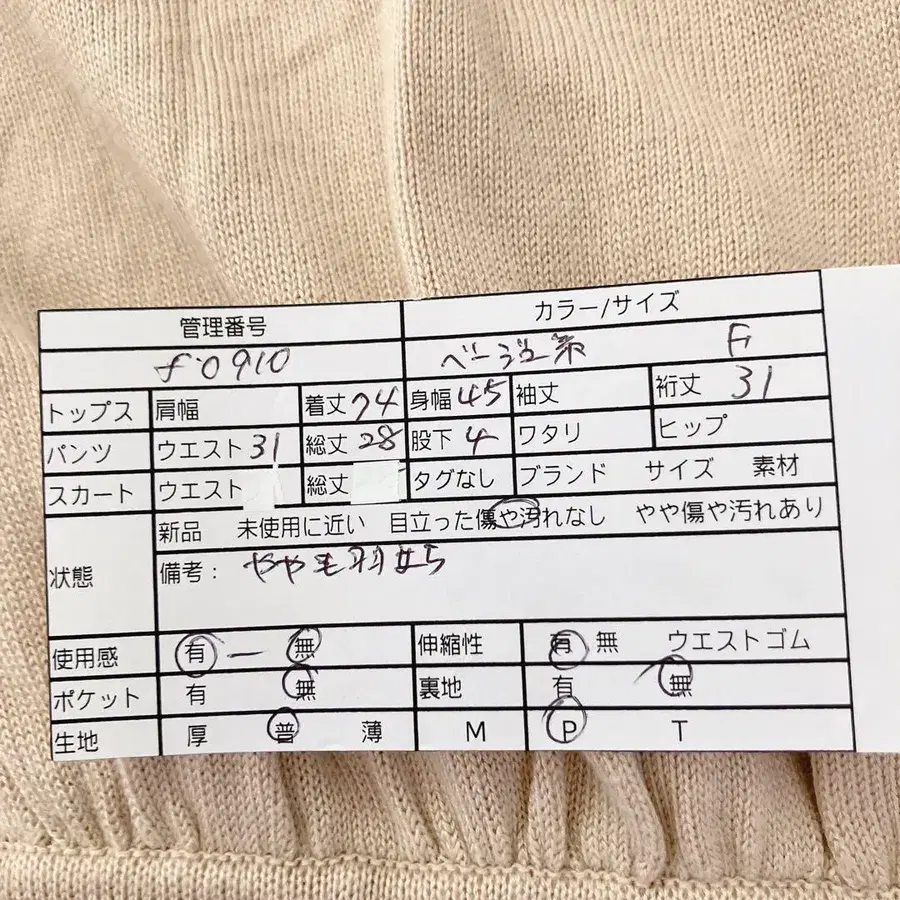 管理番号 カラー/サイズ
f0910 ベージュ系 F
トップス 肩幅 着丈 74 身幅 45 袖丈 裄丈 31
パンツ ウエスト 31 総丈 28 股下 4 ワタリ ヒップ
スカート ウエスト 総丈 タグなし ブランド サイズ 素材
状態 新品 未使用に近い 目立った傷や汚れなし やや傷や汚れあり
備考： やや毛羽立ち
使用感 有 ー 無 伸縮性 有 無 ウエストゴム
ポケット 有 無 裏地 有 無
生地 厚 普 薄 M P T